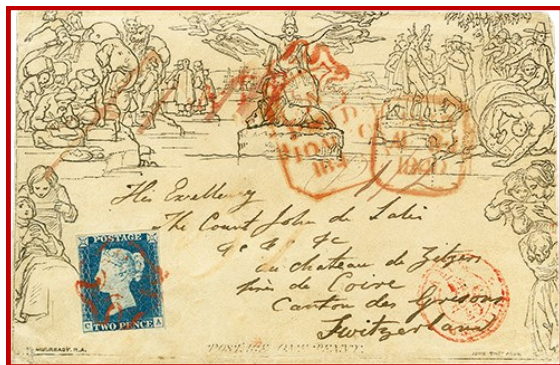 His Excellency
The Count John de Salis
&c &c &c
au chateau de Zitzers
près de Coire
Canton des Grisons
Switzerland
POSTAGE
TWO PENCE
C A
MULREADY. R.A.
POSTAGE ONE PENNY.